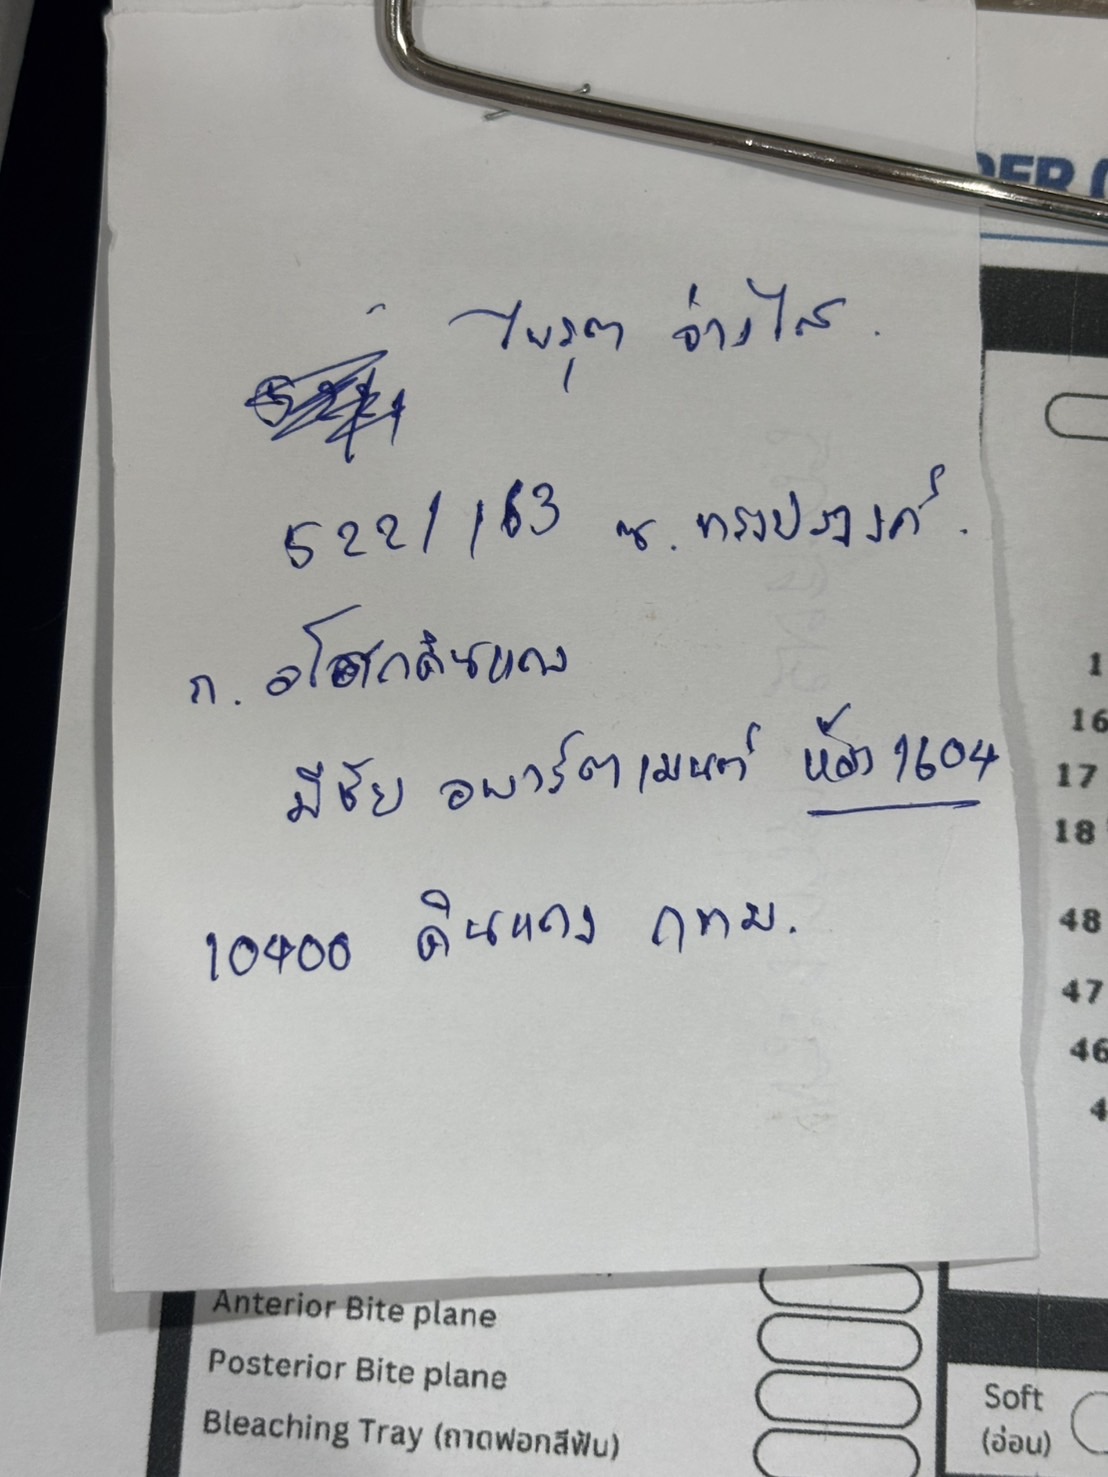 ไพรุต อ่างไส
522/163 ซ. ทรงปรางค์.
ถ. อโศกดินแดง
มีชัย อพาร์ตเมนต์ ห้อง 1604
10400 ดินแดง กทม.
1
16
17
18
48
47
46
4
Anterior Bite plane
Posterior Bite plane
Bleaching Tray (ถาดฟอกสีฟัน)
Soft
(อ่อน)